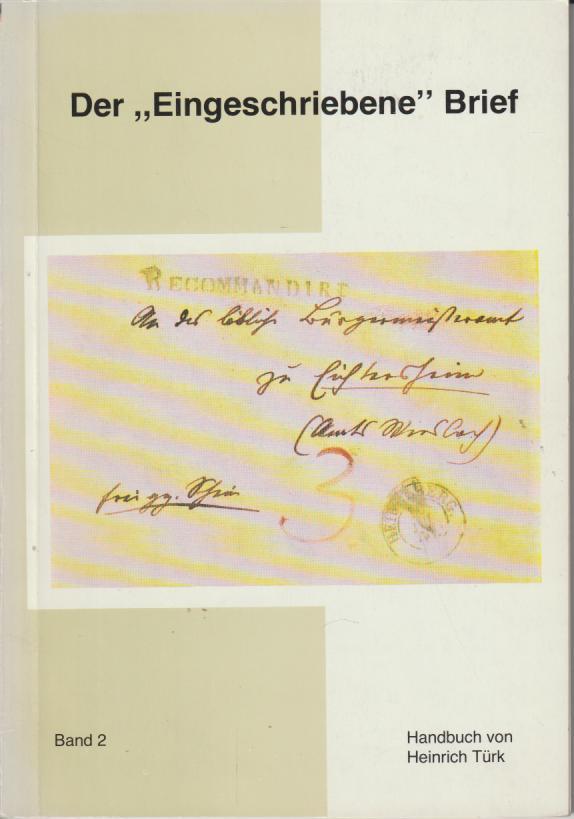 Der „Eingeschriebene” Brief
RECOMMANDIRT
An das löbliche Bürgermeisteramt
zu Eichtersheim
(Amts Wiesloch)
frei gg. Schein
3
HEIDELBERG
Band 2
Handbuch von
Heinrich Türk